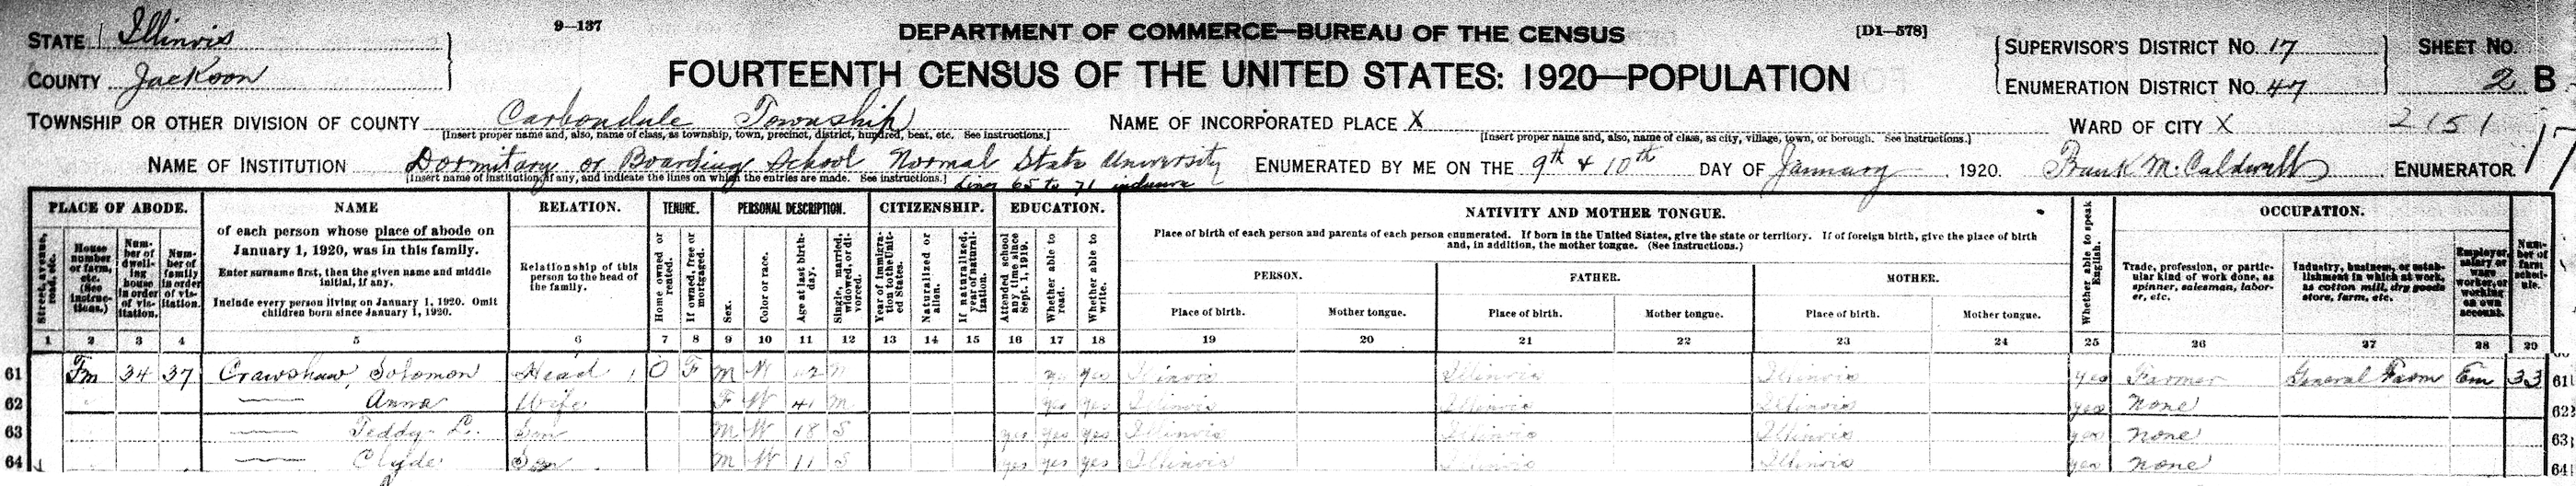 STATE Illinois
COUNTY Jackson
9—137
DEPARTMENT OF COMMERCE—BUREAU OF THE CENSUS
[D1—578]
FOURTEENTH CENSUS OF THE UNITED STATES: 1920—POPULATION
SUPERVISOR'S DISTRICT NO. 17
ENUMERATION DISTRICT NO. 47
SHEET NO.
2 B
TOWNSHIP OR OTHER DIVISION OF COUNTY Carbondale Township
[Insert proper name and, also, name of class, as township, town, precinct, district, hundred, beat, etc. See instructions.]
NAME OF INCORPORATED PLACE X
[Insert proper name and, also, name of class, as city, village, town, or borough. See instructions.]
WARD OF CITY X
2151
NAME OF INSTITUTION Dormitary or Boarding School Normal State University
[Insert name of institution, if any, and indicate the lines on which the entries are made. See instructions.] Lines 65 to 71 inclusive
ENUMERATED BY ME ON THE 9th & 10th DAY OF January, 1920. Frank M. Caldwell ENUMERATOR.
PLACE OF ABODE.
Street, avenue, road, etc.
House number or farm, etc. (See instructions.)
Number of dwelling house in order of visitation.
Number of family in order of visitation.
NAME
of each person whose place of abode on January 1, 1920, was in this family.
Enter surname first, then the given name and middle initial, if any.
Include every person living on January 1, 1920. Omit children born since January 1, 1920.
RELATION.
Relationship of this person to the head of the family.
TENURE.
Home owned or rented.
If owned, free or mortgaged.
PERSONAL DESCRIPTION.
Sex.
Color or race.
Age at last birthday.
Single, married, widowed, or divorced.
CITIZENSHIP.
Year of immigration to the United States.
Naturalized or alien.
If naturalized, year of naturalization.
EDUCATION.
Attended school any time since Sept. 1, 1919.
Whether able to read.
Whether able to write.
NATIVITY AND MOTHER TONGUE.
Place of birth of each person and parents of each person enumerated. If born in the United States, give the state or territory. If of foreign birth, give the place of birth and, in addition, the mother tongue. (See instructions.)
PERSON.
Place of birth.
Mother tongue.
FATHER.
Place of birth.
Mother tongue.
MOTHER.
Place of birth.
Mother tongue.
Whether able to speak English.
OCCUPATION.
Trade, profession, or particular kind of work done, as spinner, salesman, laborer, etc.
Industry, business, or establishment in which at work, as cotton mill, dry goods store, farm, etc.
Employer, salary or wage worker, or working on own account.
Number of farm schedule.
1 2 3 4 5 6 7 8 9 10 11 12 13 14 15 16 17 18 19 20 21 22 23 24 25 26 27 28 29
61 Fm 34 37 Crawshaw, Solomon Head 1 O F M W M yes yes Illinois Illinois Illinois yes Farmer General Farm Em 33 61
62 — Anna Wife F W 41 M yes yes Illinois Illinois Illinois yes none 62
63 — Teddy L. Son M W 18 S yes yes yes Illinois Illinois Illinois yes none 63
64 — Clyde Son M W 11 S yes yes yes Illinois Illinois Illinois yes none 64